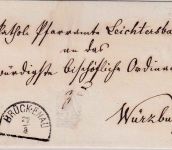 kathol. Pfarramte Leichtersba
an das
würdigste bischöfliche Ordinar
zu
BRÜCKENAU
Würzbu